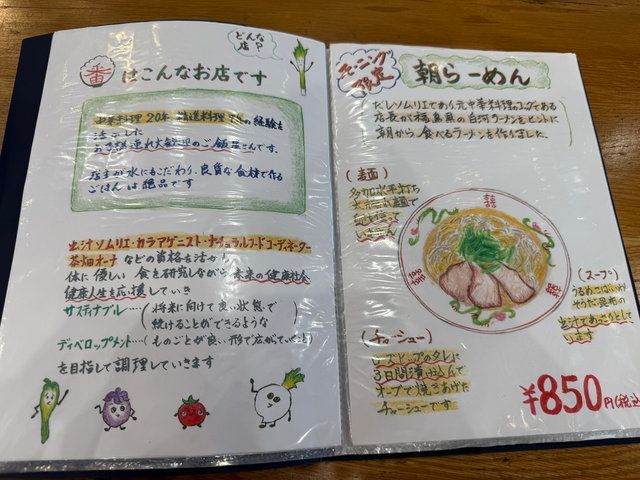 どんな店？
番 はこんなお店です
中華料理20年 精進料理 の経験を
活かした
お子様連れ大歓迎のご飯屋さんです。
店主が水にもこだわり、良質な食材で作る
ごはんは絶品です
出汁ソムリエ・カラアゲニスト・ナチュラルフードコーディネーター
茶畑オーナー などの資格を活かし
体に優しい食を研究しながら未来の健康社会
健康人生を応援していき
サスティナブル…(将来に向けて良い状態で
続けることができるような
ディベロップメント…(ものごとが良い形で広がっていくこと)
を目指して調理していきます
モーニング
限定
朝らーめん
だしソムリエであり元中華料理のコックである
店長が福島県の白河ラーメンをヒントに
朝から食べるラーメンを作りました。
(麺)
多加水手打ち
(スープ)
あっさりとして
います
(チャーシュー)
のタレに
3日間漬け込んで
オーブンで焼きあげた
チャーシューです
¥850円(税込)